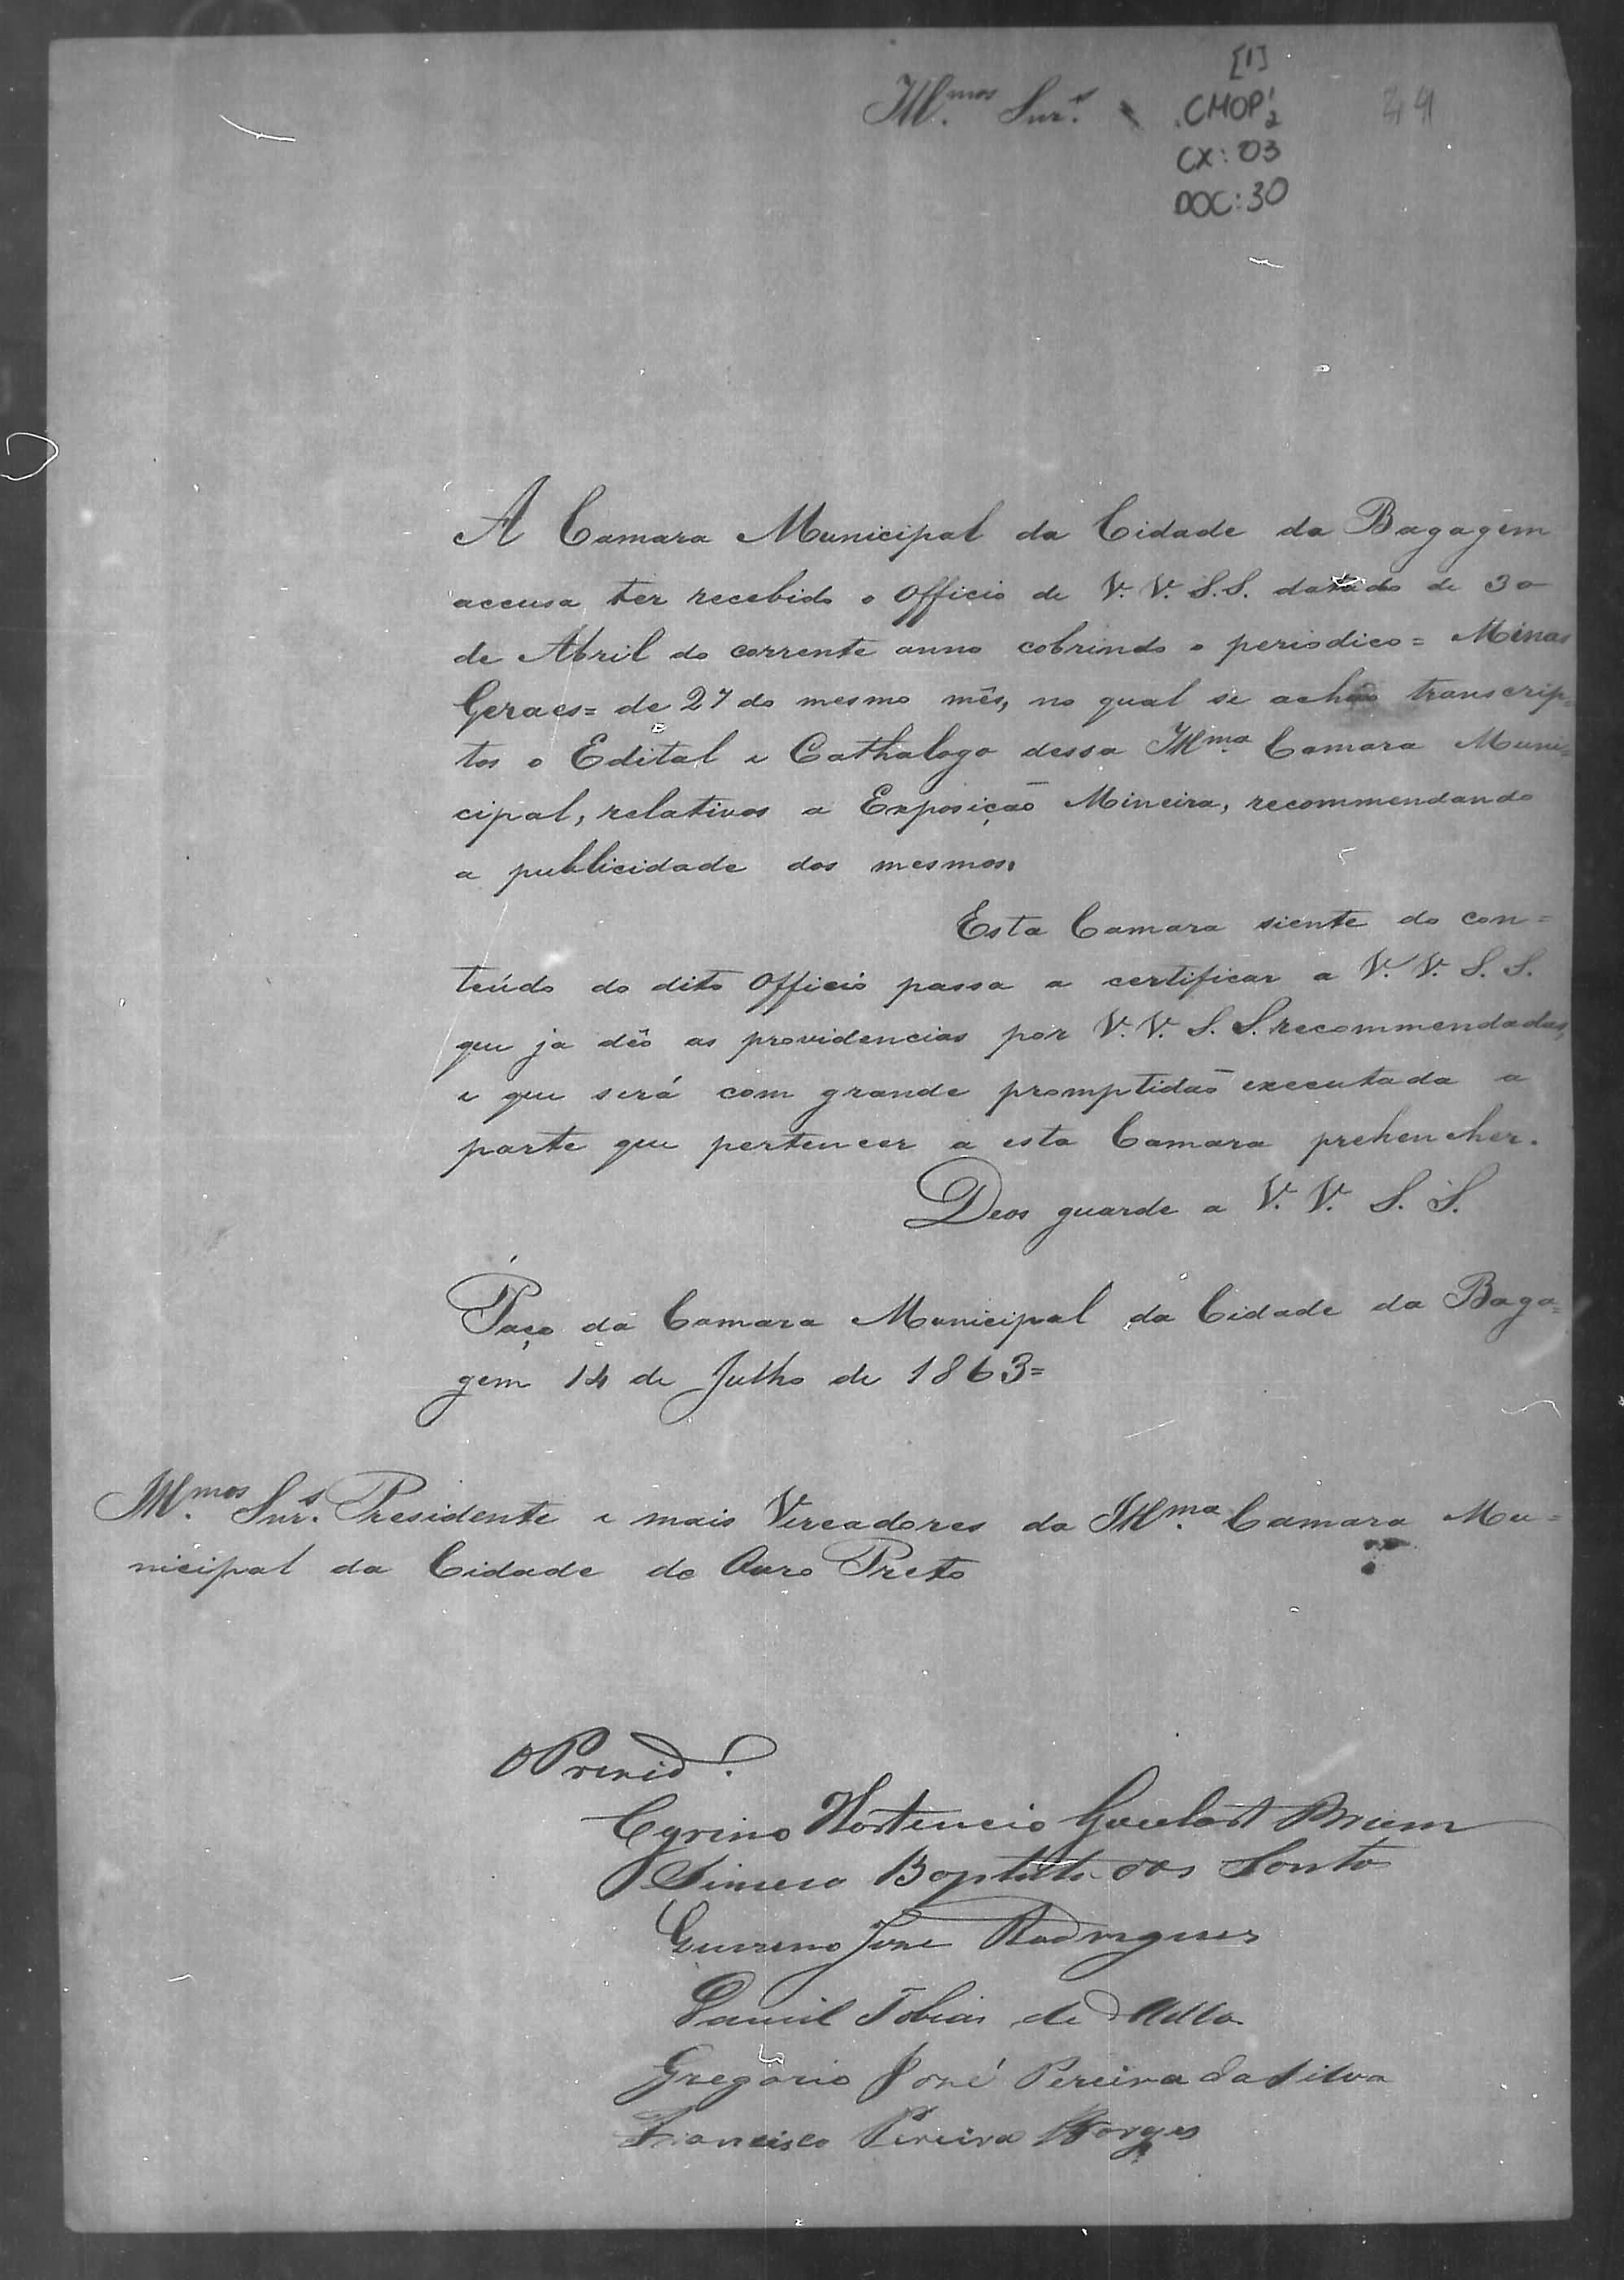 [1]
Illmos. Snrs.
CMOP 1/2
49
CX: 03
DOC: 30
A Camara Municipal da Cidade da Bagagem
accusa ter recebido o Officio de V. V. S. S. datado de 30
de Abril do corrente anno cobrindo o periodico = Minas
Geraes = de 27 do mesmo mês, no qual se achão transcrip=
tos o Edital e Cathalogo dessa Illma. Camara Muni=
cipal, relativos a Exposição Mineira, recommendando
a publicidade dos mesmos.
Esta Camara siente do con=
teúdo do dito Officio passa a certificar a V. V. S. S.
que ja dêo as providencias por V. V. S. S. recommendadas,
e que será com grande promptidão executada a
parte que pertencer a esta Camara prehencher.
Deos guarde a V. V. S. S.
Paço da Camara Municipal da Cidade da Baga=
gem 14 de Julho de 1863=
Illmos. Snrs. Presidente e mais Vereadores da Illma. Camara Mu=
nicipal da Cidade do Ouro Preto
O Presid.e
Cyrino Hortencio Goulart Brum
Baptista dos Santos
José Rodrigues
Daniel Tobias de Mello
Gregorio José Pereira da Silva
Francisco Pereira Borges